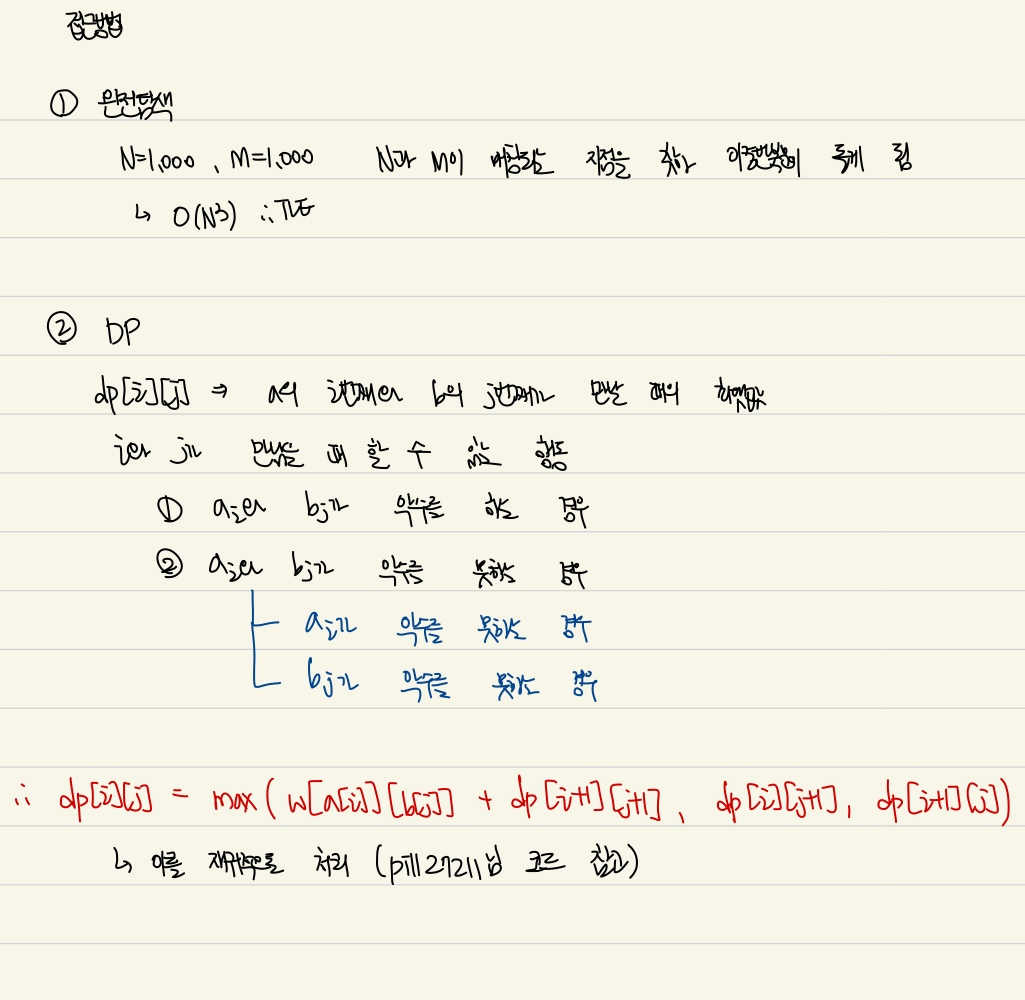 접근방법
① 완전탐색
N=1,000, M=1,000 N과 M이 매칭되는 지점을 찾아 이중반복문이 돌게 됨
↳ O(N³) ∴ TLE
② DP
dp[i][j] ⇒ a의 i번째와 b의 j번째가 만날 때의 최댓값
i와 j가 만났을 때 할 수 있는 행동
① aᵢ와 bⱼ가 악수를 하는 경우
② aᵢ와 bⱼ가 악수를 못하는 경우
aᵢ가 악수를 못하는 경우
bⱼ가 악수를 못하는 경우
∴ dp[i][j] = max( w[a[i]][b[j]] + dp[i+1][j+1], dp[i][j+1], dp[i+1][j])
↳ 이를 재귀적으로 처리 ( 님 코드 참고)